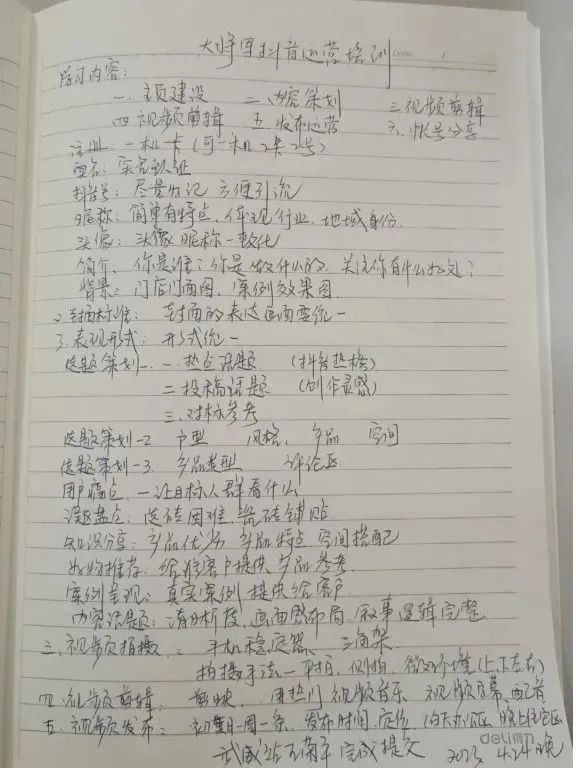 大将军抖音运营培训
学习内容:
一. 主页建设 二. 内容策划 三. 视频剪辑
四. 视频剪辑 五. 发布运营 六. 帐号分享
注册: 一机一卡 (可一机2卡2号)
实名: 实名认证
抖音号: 尽量好记 方便引流
昵称: 简单有特点, 体现行业, 地域身份.
头像: 头像昵称一致化
简介: 你是谁? 你是做什么的, 关注你有什么好处?
背景: 门店门面图, 案例效果图.
2. 封面标准: 封面的表达画面要统一
3. 表现形式: 形式统一
选题策划一. 一. 热点话题 (抖音热榜)
二 投稿话题 (创作灵感)
三. 对标参考
选题策划-2 户型 风格, 产品 空间
选题策划-3. 产品类型 评论区
用户痛点. 一让目标人群看什么
误区盘点: 选砖困难, 瓷砖铺贴
知识分享: 产品优劣 产品特点 空间搭配
好物推荐: 给准客户提供产品参考.
案例呈现: 真实案例 提供给客户.
内容话题: 清晰, 画面感布局, 叙事逻辑完整
三. 视频拍摄: 手机稳定器 三角架.
拍摄手法一平拍, 侧拍, (上下左右)
四. 视频剪辑, 剪映, 用热门视频音乐 视频字幕, 配音
五. 视频发布: 初期一周一条, 发布时间, 定位, 白天办公区 晚上住宅区
武威 完成提交 2023 4.24 晚
Date
delixin